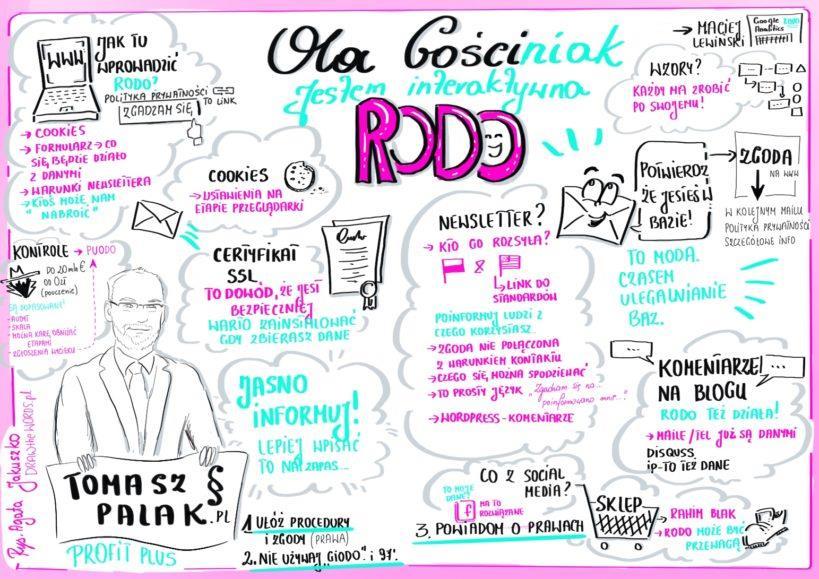 Ola Gościniak
Jestem interaktywna
RODO
WWW
JAK TU
WPROWADZIĆ
RODO?
POLITYKA PRYWATNOŚCI
TO LINK
ZGADZAM SIĘ
→ COOKIES
→ FORMULARZ → CO
SIĘ BĘDZIE DZIAŁO
Z DANYMI
→ WARUNKI NEWSLETTERA
→ KTOŚ MOŻE NAM
"NABROIĆ"
COOKIES
→ USTAWIENIA NA
ETAPIE PRZEGLĄDARKI
KONTROLE → PUODO
DO 20 mln €
OD 0 zł
(pouczenie)
SĄ DOPASOWANE!
- AUDYT
- SKALA
- MOŻNA KARĘ OBNIŻAĆ
ETAPAMI
CERTYFIKAT
SSL
TO DOWÓD, ŻE JEST
BEZPIECZNIEJ
WARTO ZAINSTALOWAĆ
GDY ZBIERASZ DANE
JASNO
INFORMUJ!
LEPIEJ WPISAĆ
TO NA ZAPAS...
TOMASZ §
PALAK.PL
PROFIT PLUS
Rys. Agata Jakuszko
DRAWtheWORDS.pl
1 UŁÓŻ PROCEDURY
I ZGODY (PRAWA)
2. NIE UŻYWAJ „GIODO" i 97'.
3. POWIADOM O PRAWACH
NEWSLETTER?
→ KTO GO ROZSYŁA?
&
↳ LINK DO
STANDARDÓW
POINFORMUJ LUDZI Z
CZEGO KORZYSTASZ...
→ ZGODA NIE POŁĄCZONA
Z WARUNKIEM KONTAKTU
→ CZEGO SIĘ MOŻNA SPODZIEWAĆ
→ TO PROSTY JĘZYK "Zgadzam się na...
poinformowano mnie..."
→ WORDPRESS - KOMENTARZE
CO Z SOCIAL
MEDIA?
TO MOJE
DANE?
f
MA TO
ROZWIĄZANE
→ MACIEJ
LEWIŃSKI
Google
Analitics
WZORY?
KAŻDY MA ZROBIĆ
PO SWOJEMU!
POTWIERDZ
ŻE JESTEŚ W
BAZIE!
ZGODA
NA WWW
W KOLEJNYM MAILU
POLITYKA PRYWATNOŚCI
SZCZEGÓŁOWE INFO
TO MODA.
CZASEM
ULEGALNIANIE
BAZ.
KOMENTARZE
NA BLOGU
RODO TEŻ DZIAŁA!
→ MAILE/TEL JUŻ SĄ DANYMI
DISQUSS
IP - TO TEŻ DANE
SKLEP
→ RAHIM BLAK
→ RODO MOŻE BYĆ
PRZEWAGĄ